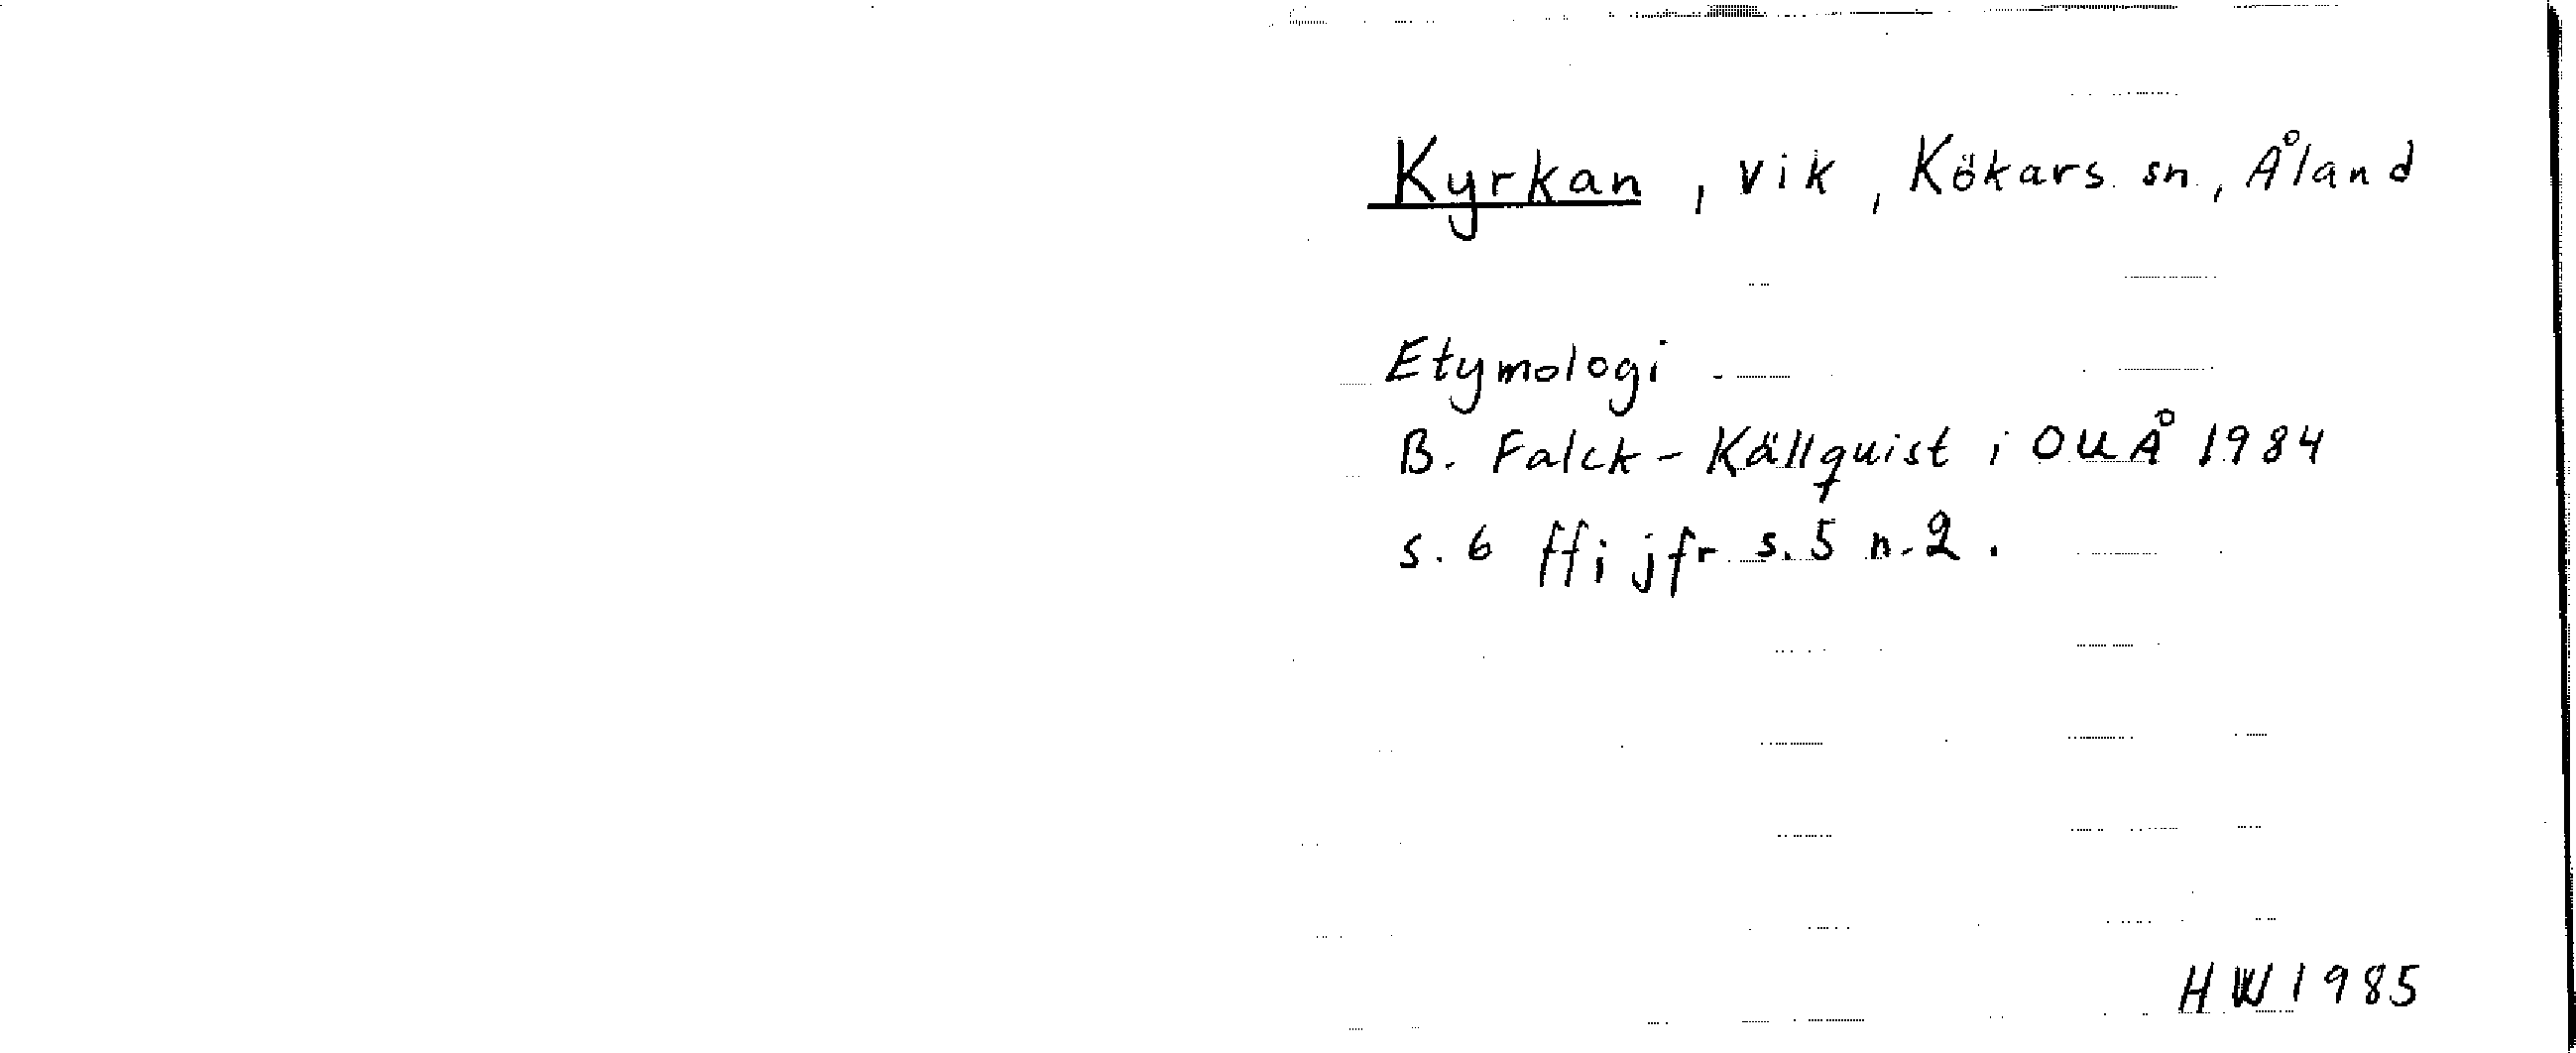 Kyrkan, vik, Kökars sn, Åland
Etymologi
B. Falck-Källquist i OUÅ 1984
s. 6 ff; jfr s. 5 n. 2.
HW 1985